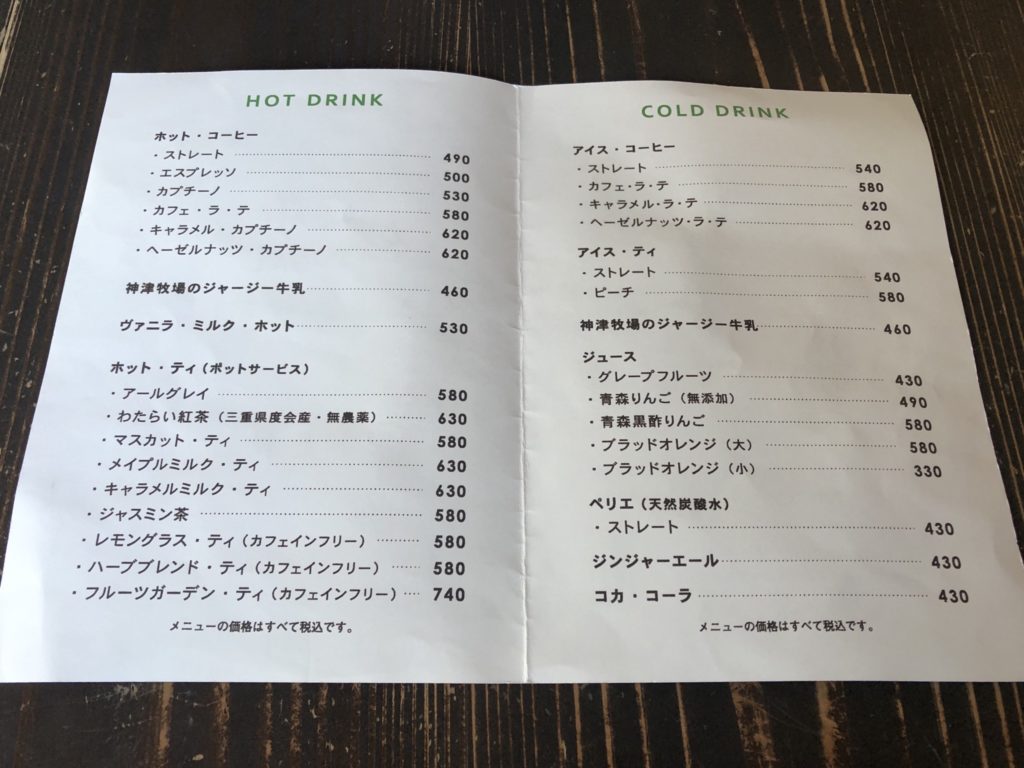 HOT DRINK
ホット・コーヒー
・ストレート 490
・エスプレッソ 500
・カプチーノ 530
・カフェ・ラ・テ 580
・キャラメル・カプチーノ 620
・ヘーゼルナッツ・カプチーノ 620
神津牧場のジャージー牛乳 460
ヴァニラ・ミルク・ホット 530
ホット・ティ(ポットサービス)
・アールグレイ 580
・わたらい紅茶(三重県度会産・無農薬) 630
・マスカット・ティ 580
・メイプルミルク・ティ 630
・キャラメルミルク・ティ 630
・ジャスミン茶 580
・レモングラス・ティ(カフェインフリー) 580
・ハーブブレンド・ティ(カフェインフリー) 580
・フルーツガーデン・ティ(カフェインフリー) 740
メニューの価格はすべて税込です。
COLD DRINK
アイス・コーヒー
・ストレート 540
・カフェ・ラ・テ 580
・キャラメル・ラ・テ 620
・ヘーゼルナッツ・ラ・テ 620
アイス・ティ
・ストレート 540
・ピーチ 580
神津牧場のジャージー牛乳 460
ジュース
・グレープフルーツ 430
・青森りんご(無添加) 490
・青森黒酢りんご 580
・ブラッドオレンジ(大) 580
・ブラッドオレンジ(小) 330
ペリエ(天然炭酸水)
・ストレート 430
ジンジャーエール 430
コカ・コーラ 430
メニューの価格はすべて税込です。